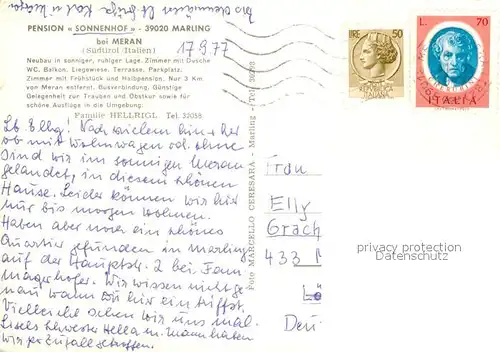 PENSION « SONNENHOF » - 39020 MARLING
bei MERAN
(Südtirol Italien)
17.9.77
Neubau in sonniger, ruhiger Lage. Zimmer mit Dusche
WC. Balkon. Liegewiese. Terrasse. Parkplatz.
Zimmer mit Frühstück und Halbpension. Nur 3 Km
von Meran entfernt. Busverbindung. Günstige
Gelegenheit zur Trauben und Obstkur sowie für
schöne Ausflüge in die Umgebung.
Familie HELLRIGL Tel. 32058
Lb. Elly! Nach vielem hin + her
ob mit Wohnwagen od. ohne
sind wir im sonnigen Meran
gelandet, in diesem schönen
Hause. Leider können wir hier
nur bis morgen wohnen.
Haben aber noch ein schönes
Quartier gefunden in Marling
auf der Hauptstr. 2 bei Fam.
Wir wissen nicht ge-
nau wann wir hier eintrifft.
Vielleicht sehen wir uns mal.
Liesels Schwester Hella u. Mann haben
wir per Zufall getroffen.
Foto MARCELLO CERESARA - Marling - Tel. 32058
LIRE 50
L. 70
ITALIA
Frau
Elly
433
privacy protection
Datenschutz